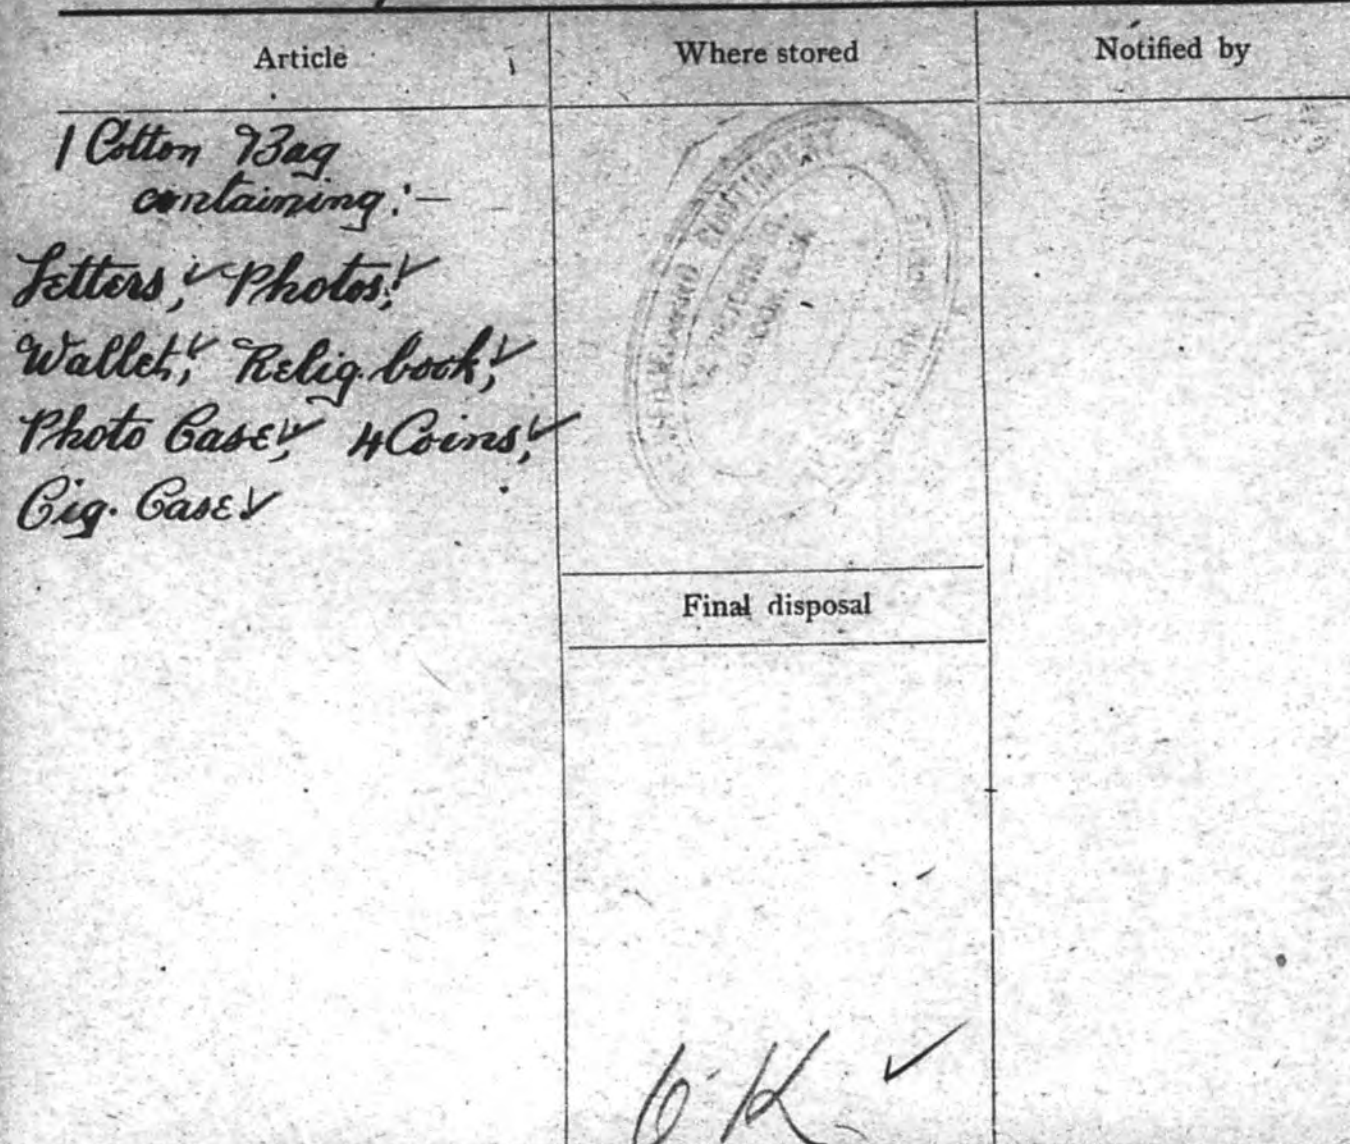 Article
Where stored
Notified by
1 Cotton Bag
containing:—
Letters, ✓ Photos, ✓
Wallet, ✓ Relig. book, ✓
Photo Case, ✓ 4 Coins, ✓
Cig. Case ✓
Final disposal
OK ✓